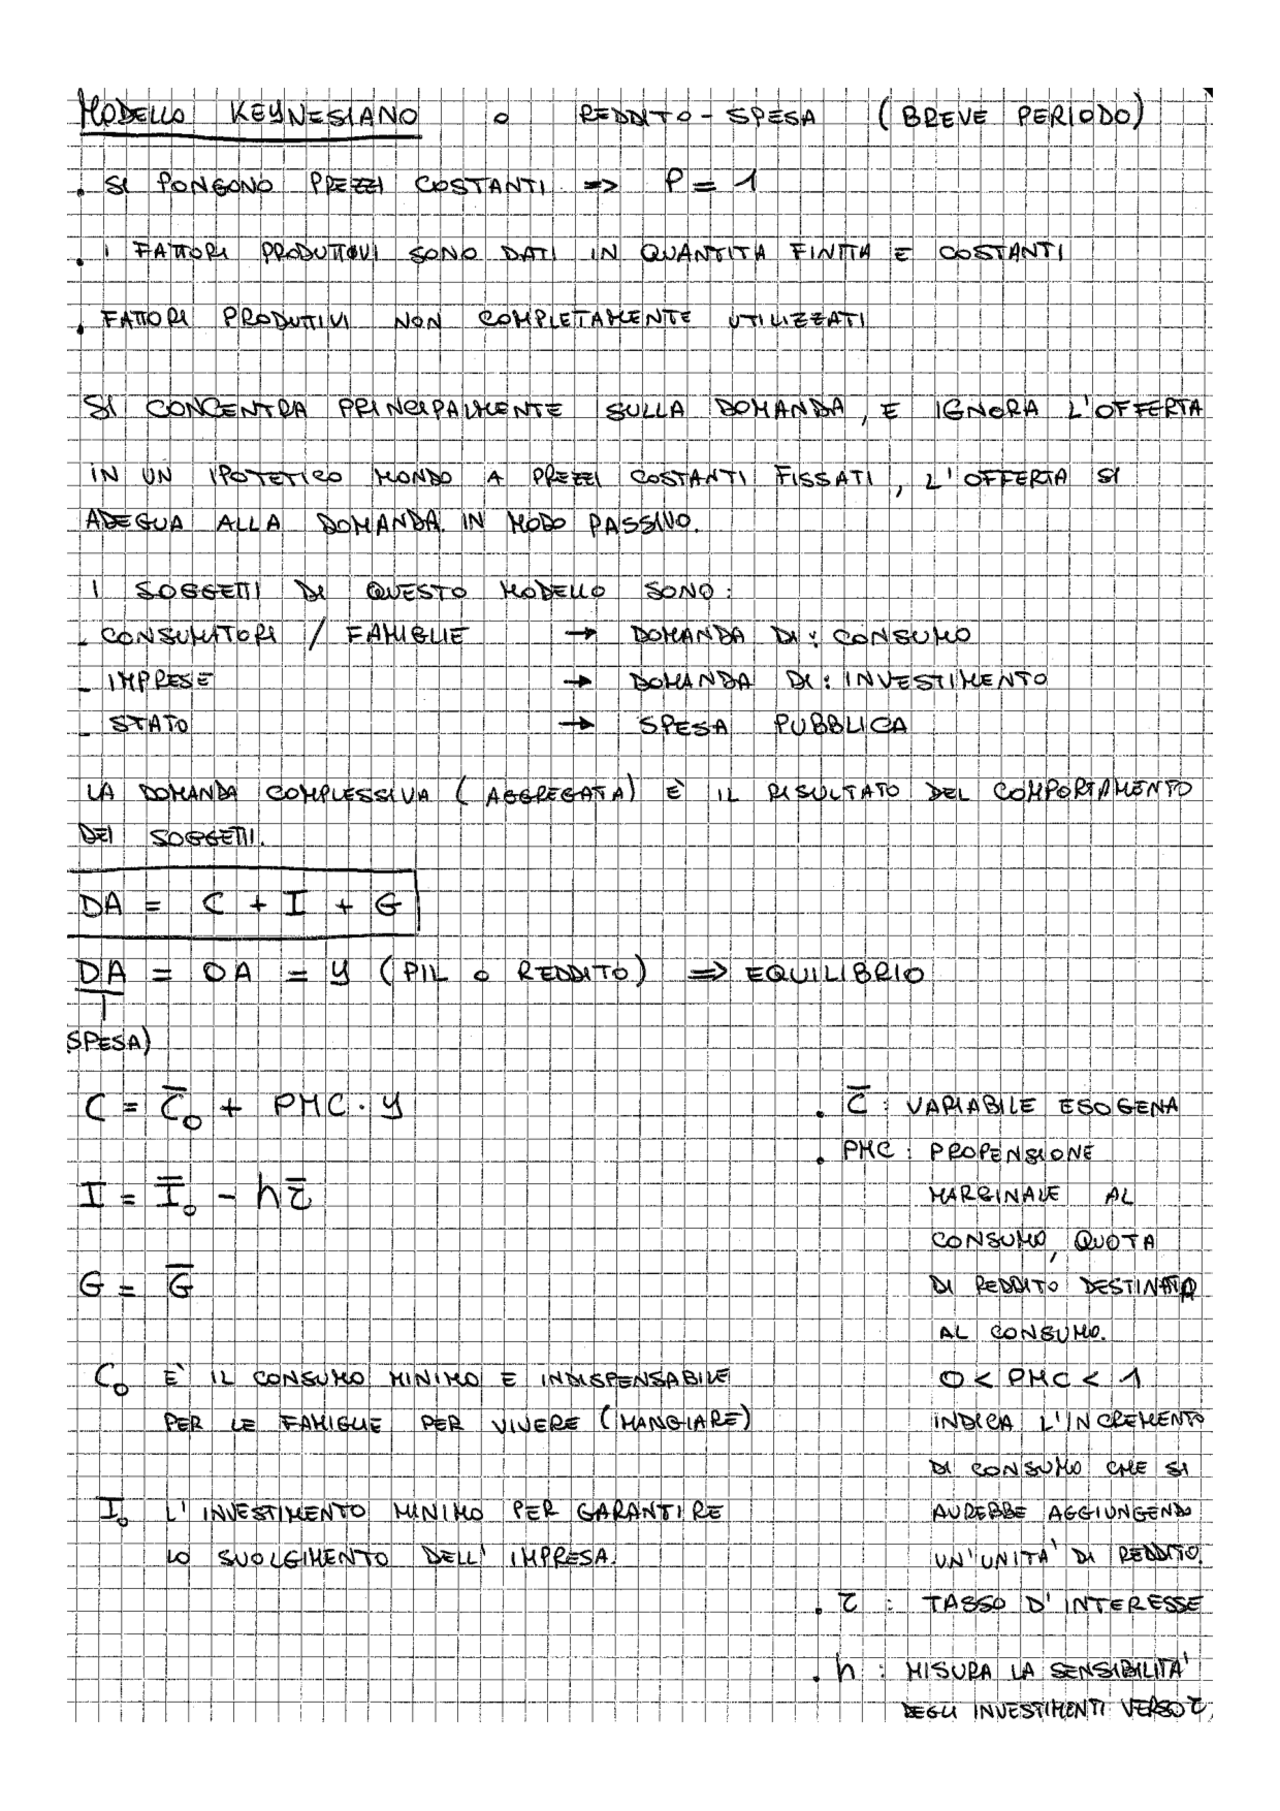 MODELLO KEYNESIANO o REDDITO-SPESA (BREVE PERIODO)
. SI PONGONO PREZZI COSTANTI => P = 1
. I FATTORI PRODUTTOVI SONO DATI IN QUANTITA FINITA E COSTANTI
. FATTORI PRODUTTIVI NON COMPLETAMENTE UTILIZZATI
SI CONCENTRA PRINCIPALMENTE SULLA DOMANDA, E IGNORA L'OFFERTA
IN UN IPOTETICO MONDO A PREZZI COSTANTI FISSATI, L'OFFERTA SI
ADEGUA ALLA DOMANDA IN MODO PASSIVO.
I SOGGETTI DI QUESTO MODELLO SONO:
- CONSUMATORI / FAMIGLIE → DOMANDA DI: CONSUMO
- IMPRESE → DOMANDA DI: INVESTIMENTO
- STATO → SPESA PUBBLICA
LA DOMANDA COMPLESSIVA (AGGREGATA) È IL RISULTATO DEL COMPORTAMENTO
DEI SOGGETTI.
DA = C + I + G
DA = OA = Y (PIL o REDDITO) => EQUILIBRIO
SPESA)
C = C̅₀ + PMC · Y
I = I̅₀ - hr̅
G = G̅
C₀ E' IL CONSUMO MINIMO E INDISPENSABILE
PER LE FAMIGLIE PER VIVERE (MANGIARE)
I₀ L'INVESTIMENTO MINIMO PER GARANTIRE
LO SVOLGIMENTO DELL'IMPRESA.
. C̅ : VARIABILE ESOGENA
. PMC : PROPENSIONE
MARGINALE AL
CONSUMO, QUOTA
DI REDDITO DESTINATA
AL CONSUMO.
0 < PMC < 1
INDICA L'INCREMENTO
DI CONSUMO CHE SI
AVREBBE AGGIUNGENDO
UN'UNITA' DI REDDITO.
. r : TASSO D'INTERESSE
. h : MISURA LA SENSIBILITA'
DEGLI INVESTIMENTI VERSO r.